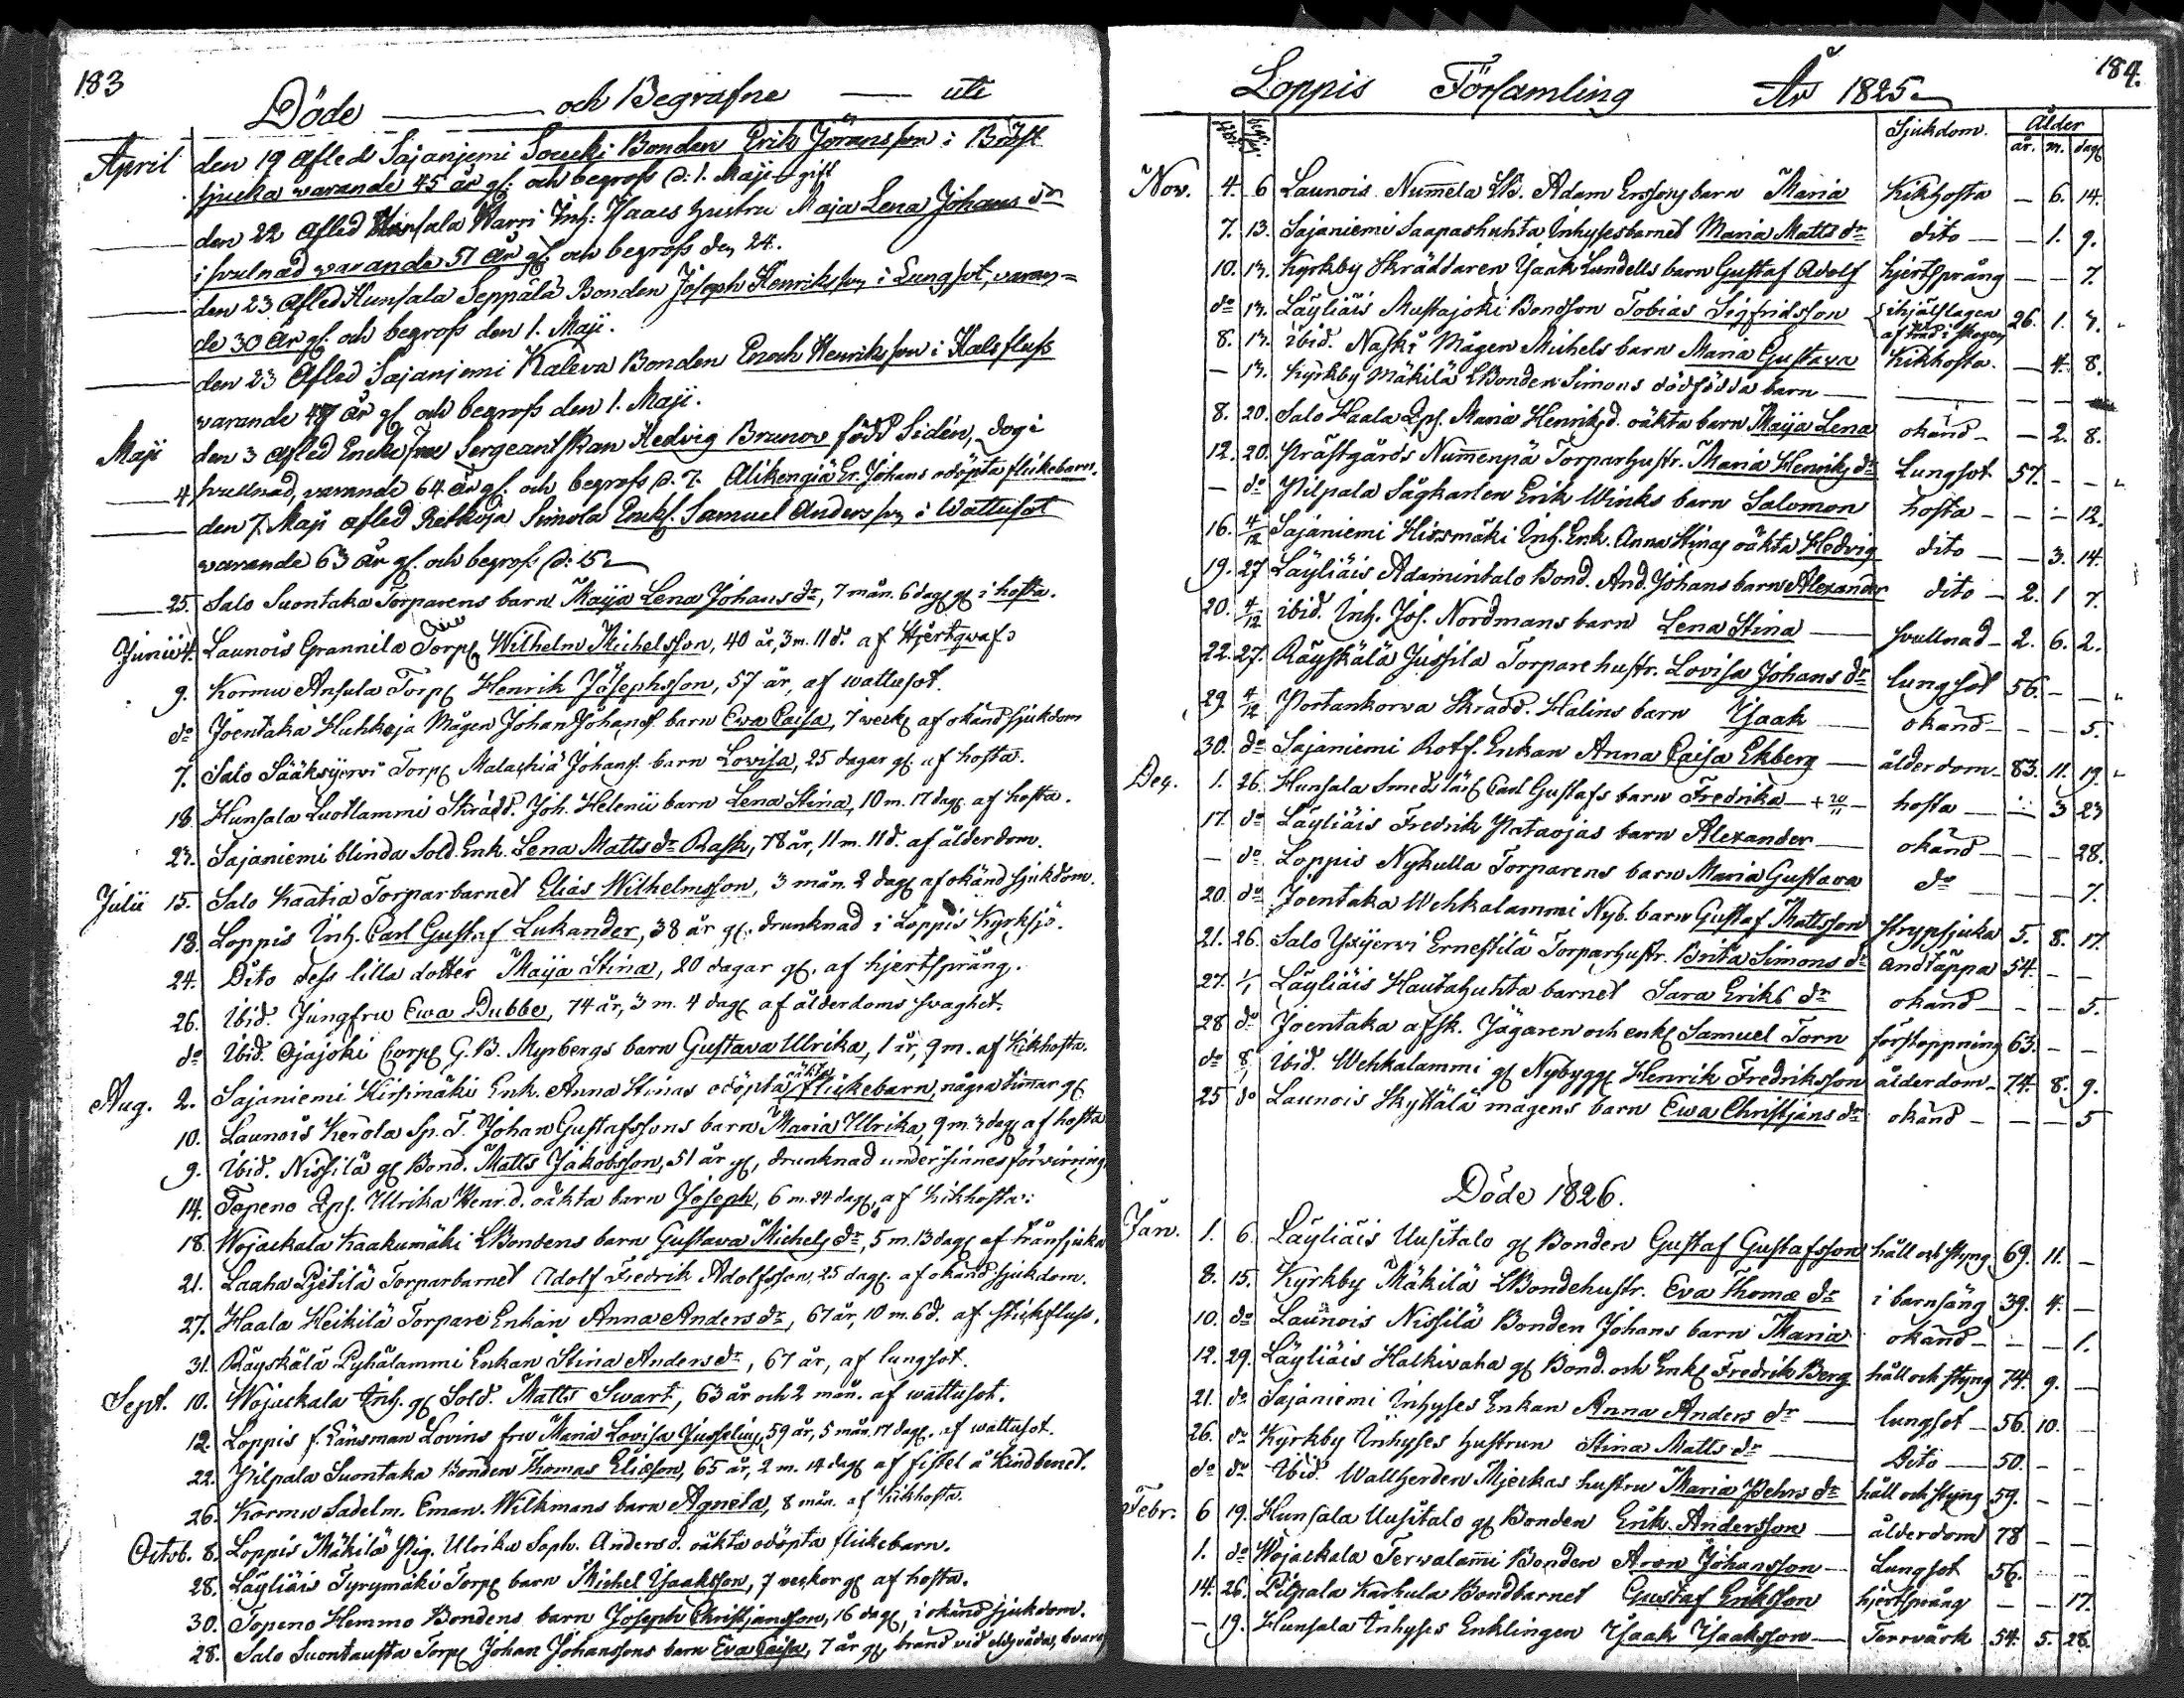 183
Döde och Begrafne uti
April den 19 Afled Sajanjemi Soucki Bonden Erik Jöransson i Bröst
sjuka varande 45 år gl: och begrofs d: 1. Maji gift
den 22 Afled Hunsala Harri Inh: Isaacs hustru Maja Lena Johans dr
i svulnad varande 51 år gl och begrofs den 24.
den 23 Afled Hunsala Seppälä Bonden Joseph Henriksson i Lungsot, varan=
de 30 år gl: och begrofs den 1. Maji.
den 23 Afled Sajanjemi Kaleva Bonden Enoch Henriksson i Halsfluss
varande 47 år gl och begrofs den 1. Maji.
Maji den 3 Afled Enkefru Sergeantskan Hedvig Brunov född Sidén, dog i
4 svullnad, varande 64 år gl: och begrofs d. 7. Alikengiä Er. Johans odöpta flickebarn.
den 7 Maji afled Retkoja Simola Enkl. Samuel Andersson i Wattusot
varande 63 år gl. och begrofs d: 15
25. Salo Suontaka Torparens barn Maija Lena Johans dr, 7 mån. 6 dag gl i hosta.
Junii 4. Launois Grannila Torp Wilhelm Michelsson, 40 år, 3 m. 11 d. af
9. Kormu Ansula Torp Henrik Josephsson, 57 år, af wattusot.
do Joentaka Huhkoja Mågen Johan Johans. barn Ewa Caisa, 7 weck af okänd sjukdom
7. Salo Sääksjerwi Torp Malachiä Johans. barn Lovisa, 25 dagar gl. af hosta.
18. Hunsala Luotlammi Skrädd. Joh. Helenii barn Lena Stina, 10 m. 17 dag. af hosta.
23. Sajaniemi blinda Sold. Enk. Lena Matts dr Rask, 78 år, 11 m. 11 d. af ålderdom.
Julii 15. Salo Kaatia Torparbarnet Elias Wilhelmsson, 3 mån. 2 dag af okänd sjukdom.
18. Loppis Inh. Carl Gustaf Lukander, 38 år gl. drunknad i Loppis Kyrksjö.
24. Dito dess lilla dotter Maija Stina, 20 dagar gl. af hjertsprång.
26. Ibid. Jungfru Ewa Dubbe, 74 år, 3 m. 4 dag af ålderdoms svaghet.
do Ibid. Ojajoki Corp G. B. Myrbergs barn Gustava Ulrika, 1 år, 9 m. af Kikhosta.
oäkta
Aug. 2. Sajaniemi Hirsimäki Enk. Anna Stinas odöpta flickebarn, några timar gl
10. Launois Kerola Sp. T. Johan Gustafssons barn Maria Ulrika, 9 m. 3 dag af hosta
9. Ibid. Nissilä gl Bond. Matts Jakobsson, 51 år gl, drunknad under sinnesförvirring
14. Topeno Qps. Ulrika Henr. d. oäkta barn Joseph, 6 m. 24 dag, af kikhosta.
18. Wojackala Kaakumäki LBondens barn Gustava Michels dr, 5 m. 13 dag af
21. Laaha Pietilä Torparbarnet Adolf Fredrik Adolfsson, 25 dag. af okänd sjukdom.
27. Haala Heikilä Torpare Enkan Anna Anders dr, 67 år, 10 m. 6 d. af stickfluss.
31. Räyskälä Pyhälammi Enkan Stina Anders dr, 67 år, af lungsot.
Sept. 10. Wojackala Inh. gl Sold. Matts Swart, 63 år och 2 mån. af wattusot.
12. Loppis f. Länsman Lovins fru Maria Lovisa Jusselius, 59 år, 5 mån. 17 dag. af wattusot.
22. Pilpala Suontaka Bonden Thomas Eliæson, 65 år, 2 m. 14 dag af fistel å Kindbenet.
26. Kormu Sadelm. Eman. Wilkmans barn Agnela, 8 mån. af kikhosta.
Octob. 8. Loppis Mäkilä Pig. Ulrika Soph. Anders d. oäkta odöpta flickebarn.
28. Läyliäis Tyrymäki Torp barn Michel Isaaksson, 7 veckor gl af hosta.
30. Topeno Hemmo Bondens barn Joseph Christjansson, 16 dag, i okänd sjukdom.
28. Salo Suontausta Torp Johan Johanssons barn Eva Caisa, 7 år gl, bränd vid eldsvåda,
184.
Loppis Församling År 1825
Sjukdom. Ålder
år. m. dag
Nov. 4. 6 Launois Numela LB. Adam Erssons barn Maria Kikhosta — 6. 14.
7. 13. Sajaniemi Saapashuhta Inhysesbarnet Maria Matts dr dito — 1. 9.
10. 13. Kyrkby Skräddaren Isaak Lundells barn Gustaf Adolf hjertsprång — — 7.
do 13. Läyliäis Mustajoki Bondson Tobias Sigfridsson ihjälslagen af träd i skogen 26. 1. 3.
8. 13. ibid. Naski Mågen Michels barn Maria Gustava Kikhosta. — 4. 8.
— 13. Kyrkby Mäkilä LBonden Simons dödfödda barn — — —
8. 20. Salo Haala Qps. Maria Henriks d. oäkta barn Maija Lena okänd — 2. 8.
12. 20. Prästgårds Numenpä Torparhustr. Maria Henriks dr Lungsot 57. — —
— do Pilpala Sågkarlen Erik Winks barn Salomon hosta — — 12.
16. 4/12 Sajaniemi Hirsmäki Inh. Enk. Anna Stinas oäkta Hedvig dito — 3. 14.
19. 27 Läyliäis Adamintalo Bond. And. Johans barn Alexander dito — 2. 1 7.
20. 4/12 ibid. Inh. Joh. Nordmans barn Lena Stina svullnad — 2. 6. 2.
22. 27. Räyskälä Jussila Torparehustr. Lovisa Johans dr lungsot 56. — —
29. 4/12 Portankorva Skrädd. Halins barn Isaak okänd — — 5.
30. do Sajaniemi Rotf. Enkan Anna Caisa Ekberg ålderdom — 83. 11. 19.
Dec. 1. 26. Hunsala Smedslär Carl Gustafs barn Fredrika + 20/11 hosta — 3 23
17. do Läyliäis Fredrik Pataojas barn Alexander okänd — — 28.
— do Loppis Nykulla Torparens barn Maria Gustava do — — 7.
20. do Joentaka Wehkalammi Nyb. barn Gustaf Mattsson strypsjuka 5. 8. 17.
21. 26. Salo Yxjerwi Ernestilä Torparhustr. Brita Simons dr andtäppa 54. — —
27. 1/1 Läyliäis Hautahuhta barnet Sara Eriks dr okänd — — 5.
28 do Joentaka afsk. Jägaren och enkl Samuel Torn förstoppning 63. — —
do 8/1 Ibid. Wehkalammi gl Nybygg Henrik Fredriksson ålderdom — 74. 8. 9.
25 do Launois Skyttälä mågens barn Ewa Christjans dr okänd — — 5
Döde 1826.
Jan. 1. 6. Läyliäis Uusitalo gl Bonden Gustaf Gustafsson håll och styng 69. 11. —
8. 15. Kyrkby Mäkilä LBondehustr. Eva Thomæ dr i barnsäng 39. 4. —
10. do Launois Nissilä Bonden Johans barn Maria okänd — — 1.
12. 29. Läyliäis Halkivaha gl Bond. och Enkl Fredrik Berg håll och styng 74. 9. —
21. do Sajaniemi Inhyses Enkan Anna Anders dr lungsot — 56. 10. —
26. do Kyrkby Inhyses hustrun Stina Matts dr Dito — 50. — —
do do Ibid. Wallherden Mjeckas hustru Maria Pehrs dr håll och styng 59. — —
Febr. 6 19. Hunsala Uusitalo gl Bonden Erik Andersson ålderdom 78 — —
1. do Wojackala Terwalami Bonden Aron Johansson Lungsot 56. — —
14. 26. Pilpala Karhula Bondbarnet Gustaf Eriksson hjertsprång — — 17.
— 19. Hunsala Inhyses Enklingen Isaak Isaaksson Torrvärk 54. 5. 28.